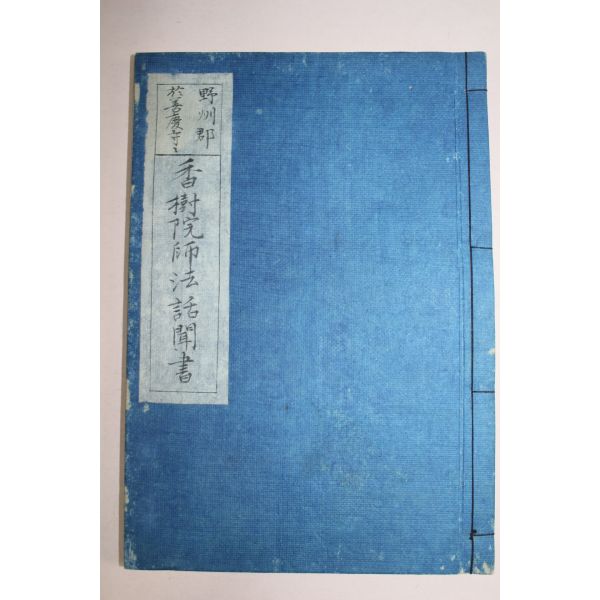 野州郡
於善慶寺之
香樹院師法話聞書